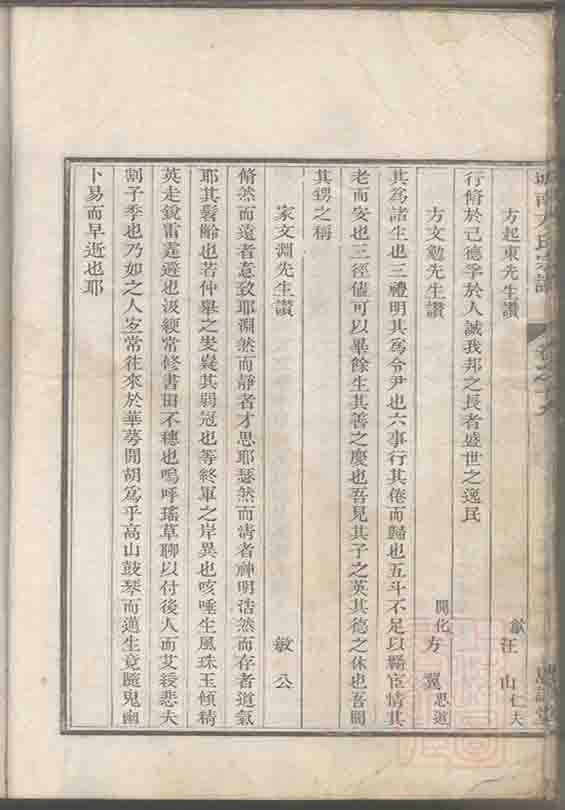 方氏宗譜
方起東先生讃
歙汪山仁夫
行脩於己德孚於人誠我邦之長者盛世之逸民
方文勉先生讃
開化方翼思道
其爲諸生也三禮明其爲令尹也六事行其倦而歸也五斗不足以羈宦情其
老而安也三徑僅可以畢餘生其善之慶也吾見其子之英其德之休也吾聞
其甥之稱
家文淵先生讃
敏公
脩然而遠者意致耶淵然而靜者才思耶瑟然而淸者神明浩然而存者道氣
耶其髫齡也若仲舉之岌嶷其弱冠也等終軍之岸異也咳唾生風珠玉傾精
英走銳雷霆避也汲綆常修書田不穗也嗚呼瑤草聊以付後人而艾綬悲夫
割子季也乃如之人室常往來於華蕚間胡爲乎高山鼓琴而邁生竟隨鬼幽
卜易而早逝也耶